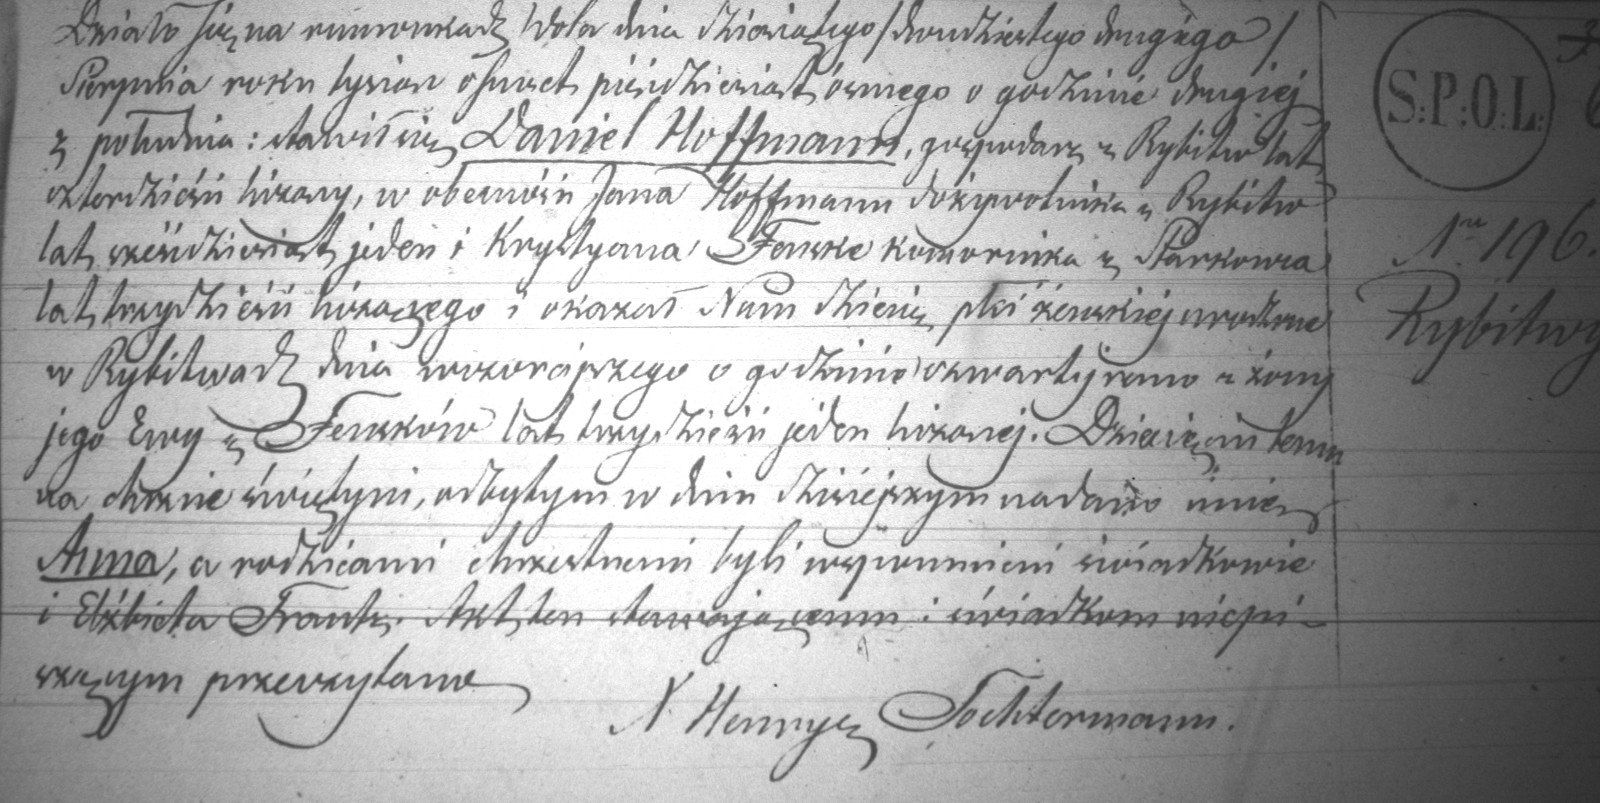 Działo się na Wola dnia dziesiątego / dwudziestego drugiego /
Sierpnia roku tysiąc ośmset pięśdziesiąt ósmego o godzinie drugiej
z południa: stawił się Daniel Hoffmann, gospodarz z Rybitw lat
czterdzieści liczący, w obecności Jana Hoffmann dożywotnika z Rybitw
lat sześćdziesiąt jeden i Krystyana Fenske komornika z
lat trzydzieści liczącego i okazał Nam dziecię płci żeńskiej urodzone
w Rybitwach dnia wczorajszego o godzinie czwartej rano z żony
jego Ewy z Fensków lat trzydzieści jeden liczącej. Dziecięciu temu
na chrzcie świętym, odbytym w dniu dzisiejszym nadano imie
Anna, a rodzicami chrzestnemi byli wspomnieni świadkowie
i Elżbieta Frantz. Akt ten stawającemu i świadkom niepi-
szącym przeczytano
X Henryk Tochtermann.
S:P:O:L:
Nr 196.
Rybitwy